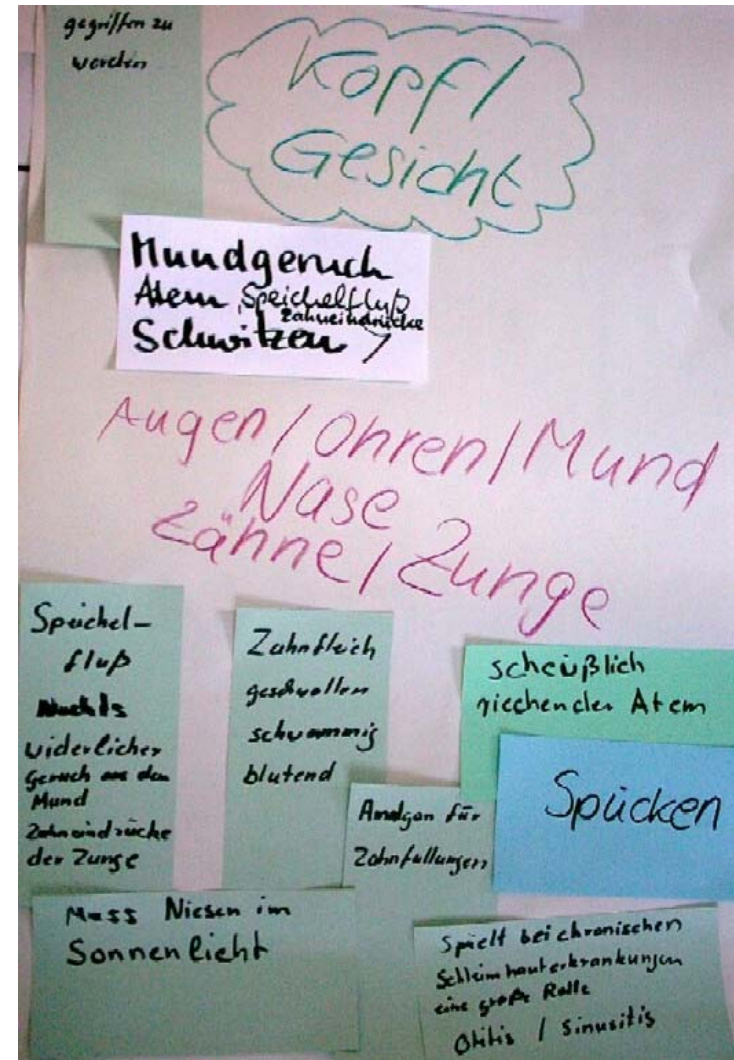 gegriffen zu
werden
Kopf/
Gesicht
Mundgeruch
Atem, Speichelfluß
Zahneindrücke
Schwitzen
Augen/Ohren/Mund
Nase
Zähne/Zunge
Speichel-
fluß
Nachts
widerlicher
Geruch aus dem
Mund
Zahneindrücke
der Zunge
Zahnfleich
geschwollen
schwammig
blutend
scheußlich
riechender Atem
Spucken
Amalgan für
Zahnfüllungen
Muss Niesen im
Sonnenlicht
Spielt bei chronischen
Schleimhauterkrankungen
eine große Rolle
Otitis / Sinusitis